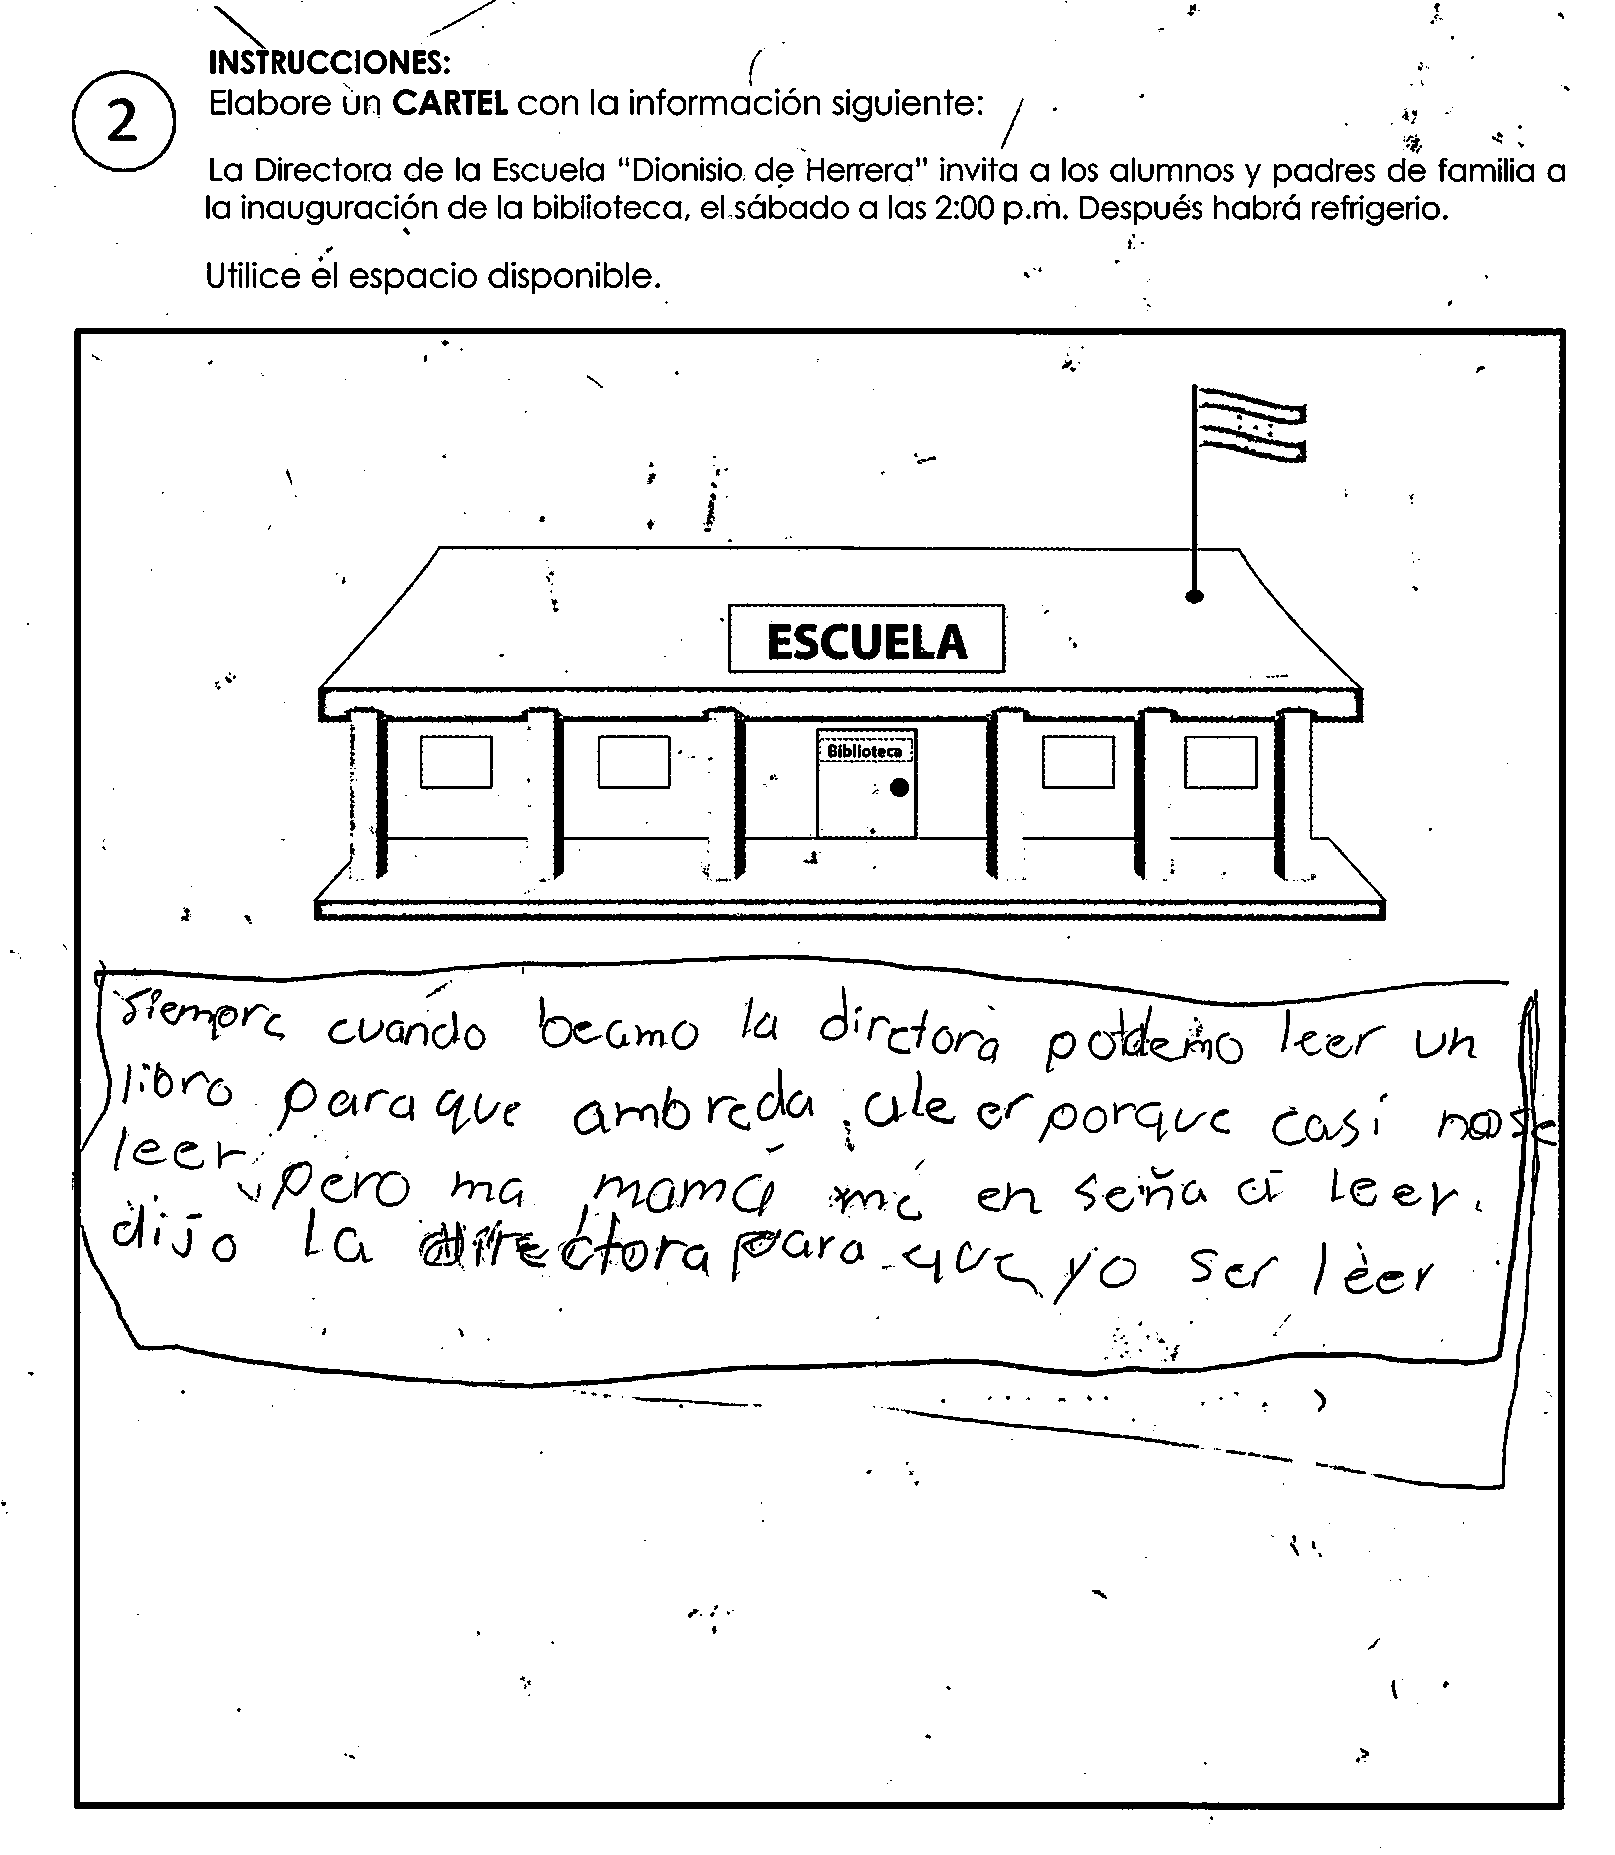 INSTRUCCIONES:
2
Elabore un CARTEL con la información siguiente:
La Directora de la Escuela "Dionisio de Herrera" invita a los alumnos y padres de familia a
la inauguración de la biblioteca, el sábado a las 2:00 p.m. Después habrá refrigerio.
Utilice el espacio disponible.
ESCUELA
Biblioteca
Siempre cuando beamo la dirctora potdemo leer un
libro para que ambreda aleer porque casi nose
leer pero ma mamá me en seña a leer.
dijo la directora para que yo ser leer